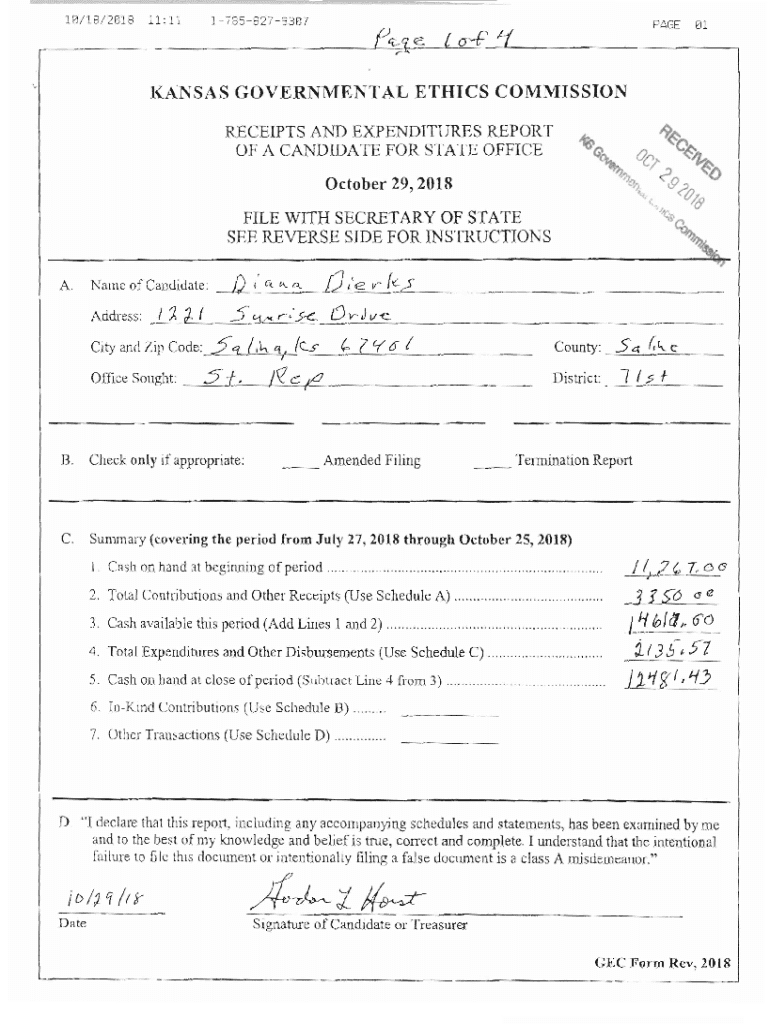 10/18/2018 11:11 1-785-827-9307 PAGE 01
Page 1 of 4
KANSAS GOVERNMENTAL ETHICS COMMISSION
RECEIPTS AND EXPENDITURES REPORT
OF A CANDIDATE FOR STATE OFFICE
October 29, 2018
FILE WITH SECRETARY OF STATE
SEE REVERSE SIDE FOR INSTRUCTIONS
RECEIVED
OCT 29 2018
KS Governmental Ethics Commission
A. Name of Candidate: Diana Dierks
Address: 1221 Sunrise Drive
City and Zip Code: Salina, Ks 67401 County: Saline
Office Sought: St. Rep District: 71st
B. Check only if appropriate: Amended Filing Termination Report
C. Summary (covering the period from July 27, 2018 through October 25, 2018)
1. Cash on hand at beginning of period 11,267.00
2. Total Contributions and Other Receipts (Use Schedule A) 3350 00
3. Cash available this period (Add Lines 1 and 2)
4. Total Expenditures and Other Disbursements (Use Schedule C) 2135.57
5. Cash on hand at close of period (Subtract Line 4 from 3) 12481.43
6. In-Kind Contributions (Use Schedule B)
7. Other Transactions (Use Schedule D)
D "I declare that this report, including any accompanying schedules and statements, has been examined by me
and to the best of my knowledge and belief is true, correct and complete. I understand that the intentional
failure to file this document or intentionally filing a false document is a class A misdemeanor."
10/29/18
Date Signature of Candidate or Treasurer
GEC Form Rev, 2018